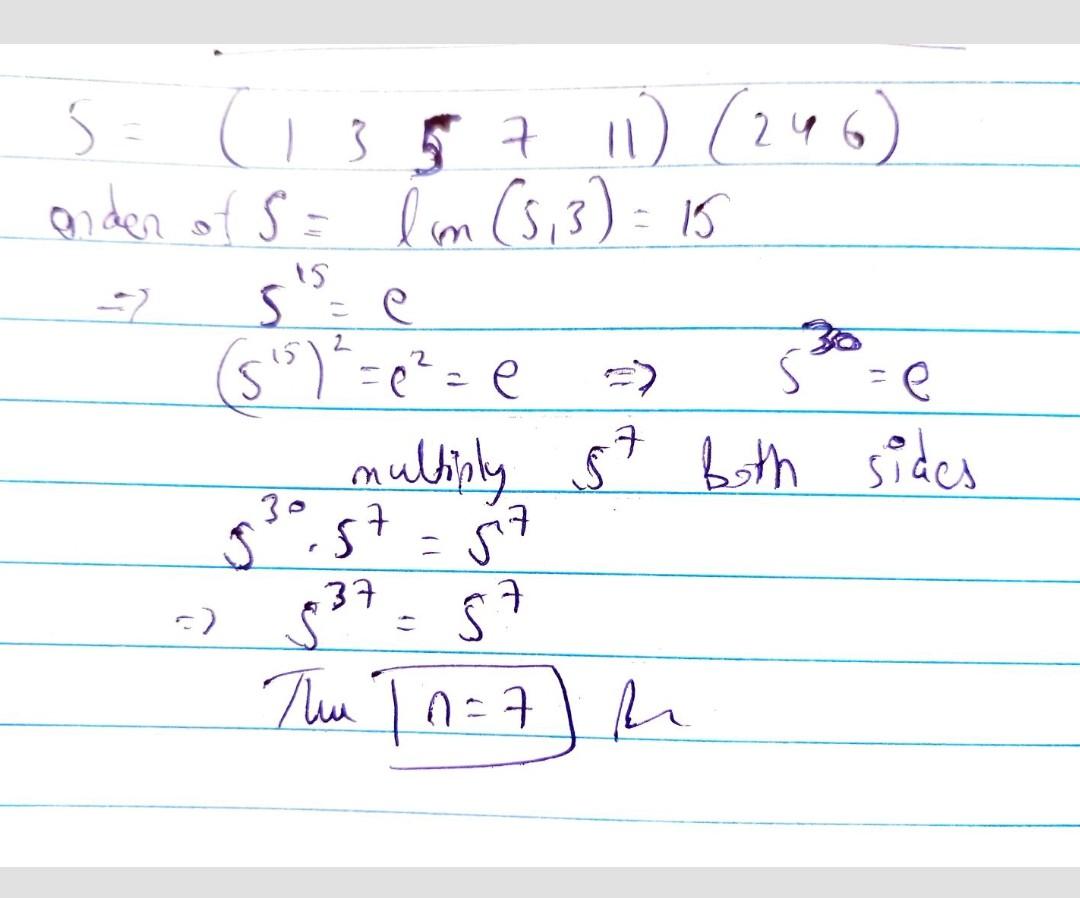 S = ( 1 3 5 7 11 ) ( 2 4 6 )
order of S = lcm ( 5 , 3 ) = 15
=> S^15 = e
(S^15)^2 = e^2 = e => S^30 = e
multiply S^7 both sides
S^30 . S^7 = S^7
=> S^37 = S^7
n = 7